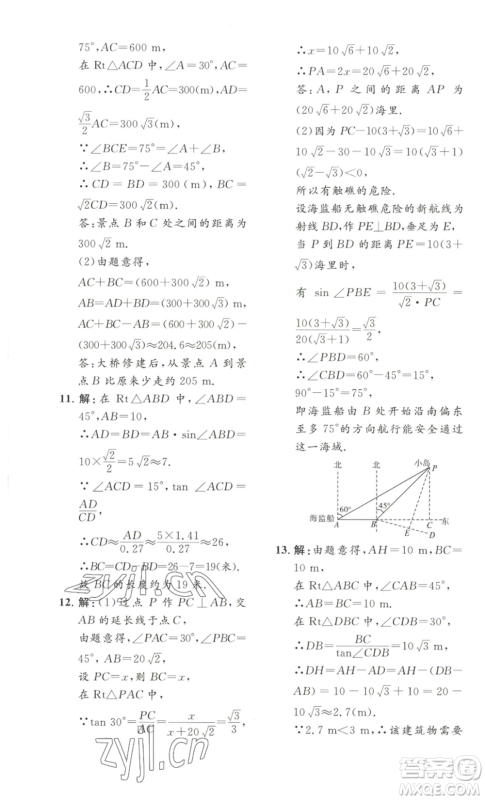 75°,AC=600 m,
在 Rt△ACD 中,∠A=30°,AC=
600,∴CD=1/2AC=300(m),AD=
√3/2 AC=300√3(m),
∵∠BCE=75°=∠A+∠B,
∴∠B=75°-∠A=45°,
∴CD=BD=300(m),BC=
√2CD=300√2(m).
答:景点 B 和 C 处之间的距离为
300√2 m.
(2)由题意得,
AC+BC=(600+300√2)m,
AB=AD+BD=(300+300√3)m,
AC+BC-AB=(600+300√2)-
(300+300√3)≈204.6≈205(m),
答:大桥修建后,从景点 A 到景
点 B 比原来少走约205 m.
11.解:在 Rt△ABD 中,∠ABD=
45°,AB=10,
∴AD=BD=AB·sin∠ABD=
10×√2/2=5√2≈7.
∵∠ACD=15°,tan∠ACD=
AD/CD,
∴CD=AD/0.27≈5×1.41/0.27≈26,
∴BC=CD-BD=26-7=19(米).
故 BC 的长度约为 19 米.
12.解:(1)过点 P 作 PC⊥AB,交
AB 的延长线于点 C,
由题意得,∠PAC=30°,∠PBC=
45°,AB=20√2,
设 PC=x,则 BC=x,
在 Rt△PAC 中,
∵tan 30°=PC/AC=x/(x+20√2)=√3/3,
∴x=10√6+10√2,
∴PA=2x=20√6+20√2,
答:A,P 之间的距离 AP 为
(20√6+20√2)海里.
(2)因为 PC-10(3+√3)=10√6+
10√2-30-10√3=10(√3+1)
(√2-√3)<0,
所以有触礁的危险.
设海监船无触礁危险的新航线为
射线 BD,作 PE⊥BD,垂足为 E,
当 P 到 BD 的距离 PE=10(3+
√3)海里时,
有 sin∠PBE=10(3+√3)/(√2·PC)=
10(3+√3)/(20(√3+1))=√3/2,
∴∠PBD=60°,
∴∠CBD=60°-45°=15°,
90°-15°=75°,
即海监船由 B 处开始沿南偏东
至多 75°的方向航行能安全通过
这一海域.
北 北 小岛
P
60° 45°
海监船 A B C 东
E D
13.解:由题意得,AH=10 m,BC=
10 m,
在 Rt△ABC 中,∠CAB=45°,
∴AB=BC=10,
在 Rt△DBC 中,∠CDB=30°,
∴DB=BC/tan∠CDB=10√3,
∴DH=AH-AD=AH-(DB-
AB)=10-10√3+10=20-
10√3≈2.7(m).
∵2.7 m<3 m,∴该建筑物需要
zyjl.cn
zyjl.cn
答案圈
MXQE.COM